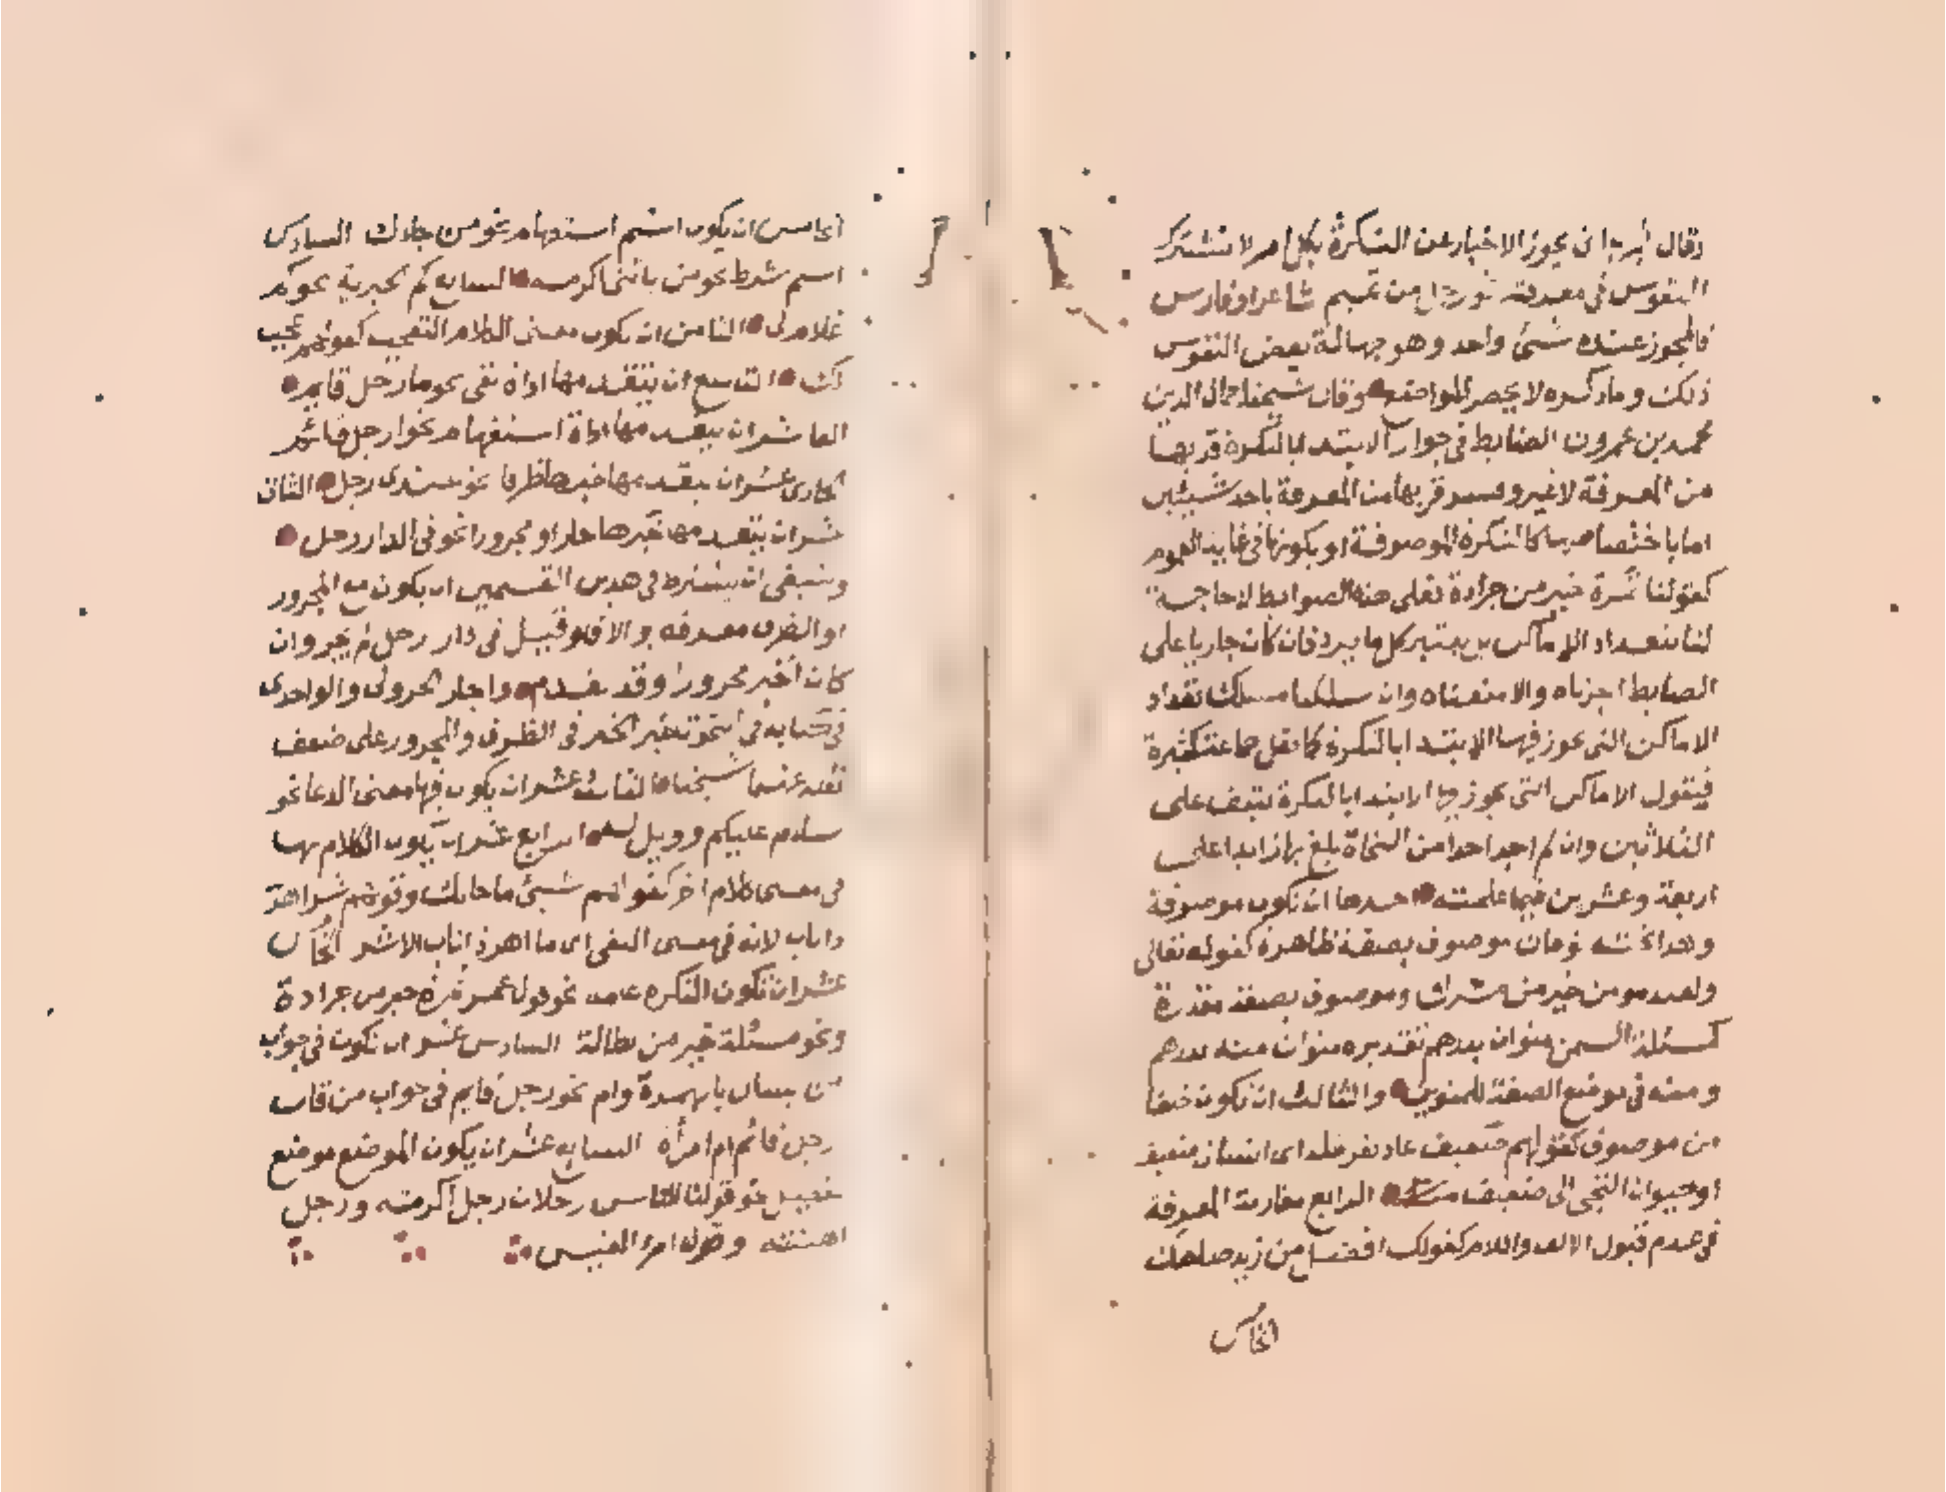 وقال ابن برهان يجوز الاخبار عن النكرة بكل امر لا تشترك
النفوس في معرفته نحو رجل من تميم شاعر او فارس
فالمجوز عنده شئ واحد وهو جهالة بعض النفوس
ذلك وما ذكره لا يحصر المواضع وقال شيخنا جمال الدين
محمد بن عمرون الضابط في جواز الابتدا بالنكرة قربها
من المعرفة لا غير وفسر قربها من المعرفة باحد شيئين
اما باختصاصها كالنكرة الموصوفة او بكونها في غاية العموم
كقولنا تمرة خير من جرادة فعلى هذه الضوابط لا حاجة
لنا بتعداد الاماكن بل يعتبر كل ما يرد فان كان جاريا على
الضابط اجزناه والا منعناه وان سلكنا مسلك تعداد
الاماكن التي يجوز فيها الابتدا بالنكرة كما فعل جماعة كثيرة
فنقول الاماكن التي يجوز فيها الابتدا بالنكرة تنيف على
الثلاثين وان لم اجد احدا من النحاة بلغ بها زايدا على
اربعة وعشرين فيما علمته احدها ان تكون موصوفة
وهذا تحته نوعان موصوف بصفة ظاهرة كقوله تعالى
ولعبد مومن خير من مشرك وموصوف بصفة مقدرة
كمسئلة السمن منوان بدرهم تقديره منوان منه بدرهم
ومنه في موضع الصفة للمنوين والثالث ان تكون خلفا
من موصوف كقولهم ضعيف عاذ بقرملة اى انسان ضعيف
او حيوان التجى الى ضعيف مثله الرابع مقاربة المعرفة
في عدم قبول الالف واللام كقولك افضل من زيد صاحبك
الخامس
الخامس ان يكون اسم استفهام نحو من جاءك السادس
اسم شرط نحو من ياتني اكرمه السابع كم الخبرية نحو كم
غلام لي الثامن ان يكون معنى الكلام التعجب كقولهم عجب
لك التاسع ان يتقدمها اداة نفى نحو ما رجل قايم
العاشر ان يتقدمها اداة استفهام نحو ارجل قائم
الحادى عشر ان يتقدمها خبرها ظرفا نحو عندى رجل الثانى
عشر ان يتقدمها خبرها جارا ومجرورا نحو في الدار رجل
وينبغى ان يشترط في هذين القسمين ان يكون مع المجرور
او الظرف معرفة والا فلو قيل في دار رجل لم يجز وان
كان الخبر مجرورا وقد تقدم واجاز الجزولى والواحدى
في كتابه في النحو تاخير الخبر في الظرف والمجرور على ضعف
نقله عنهما شيخنا الثالث عشر ان يكون فيها معنى الدعا نحو
سلام عليكم وويل له الرابع عشر ان يكون الكلام بها
في معنى كلام اخر كقولهم شيئ ما جا بك وقولهم شر اهر
ذا ناب لانه في معنى النفى اى ما اهر ذا ناب الا شر الخامس
عشر ان تكون النكرة عامة نحو قول عمر تمرة خير من جرادة
ونحو مسئلة خير من بطالة السادس عشر ان تكون في جواب
من يسال بالهمزة وام نحو رجل قايم في جواب من قال
رجل قائم ام امرأة السابع عشر ان يكون الموضع موضع
تفصيل نحو قولنا للناس رجلان رجل اكرمته ورجل
اهنته وقول امرء القيس